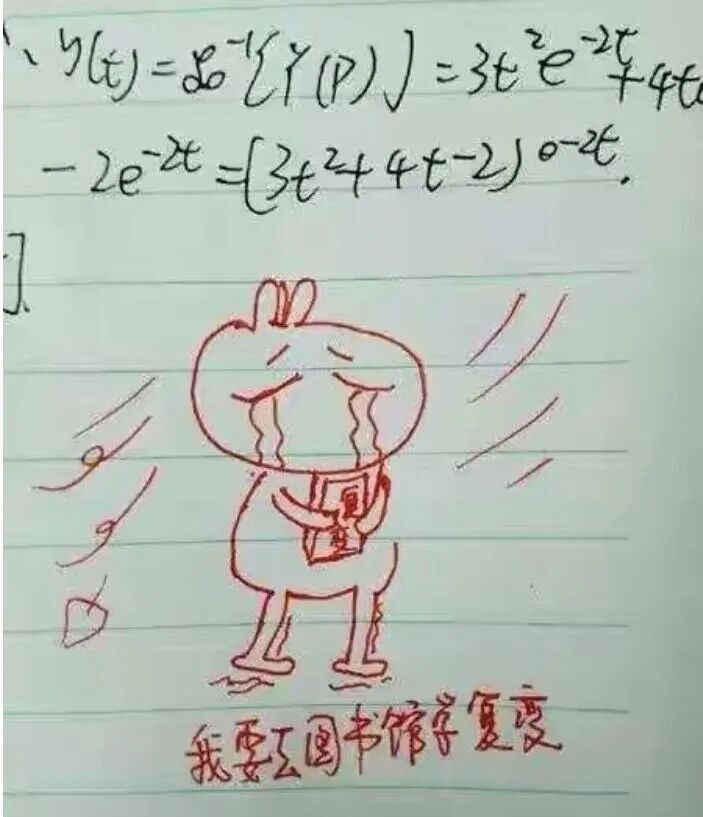 、y(t)=ℒ⁻¹[Y(p)]=3t²e^{-2t}+4t
-2e^{-2t}=(3t²+4t-2)e^{-2t}.
].
复
变
我要去图书馆学复变